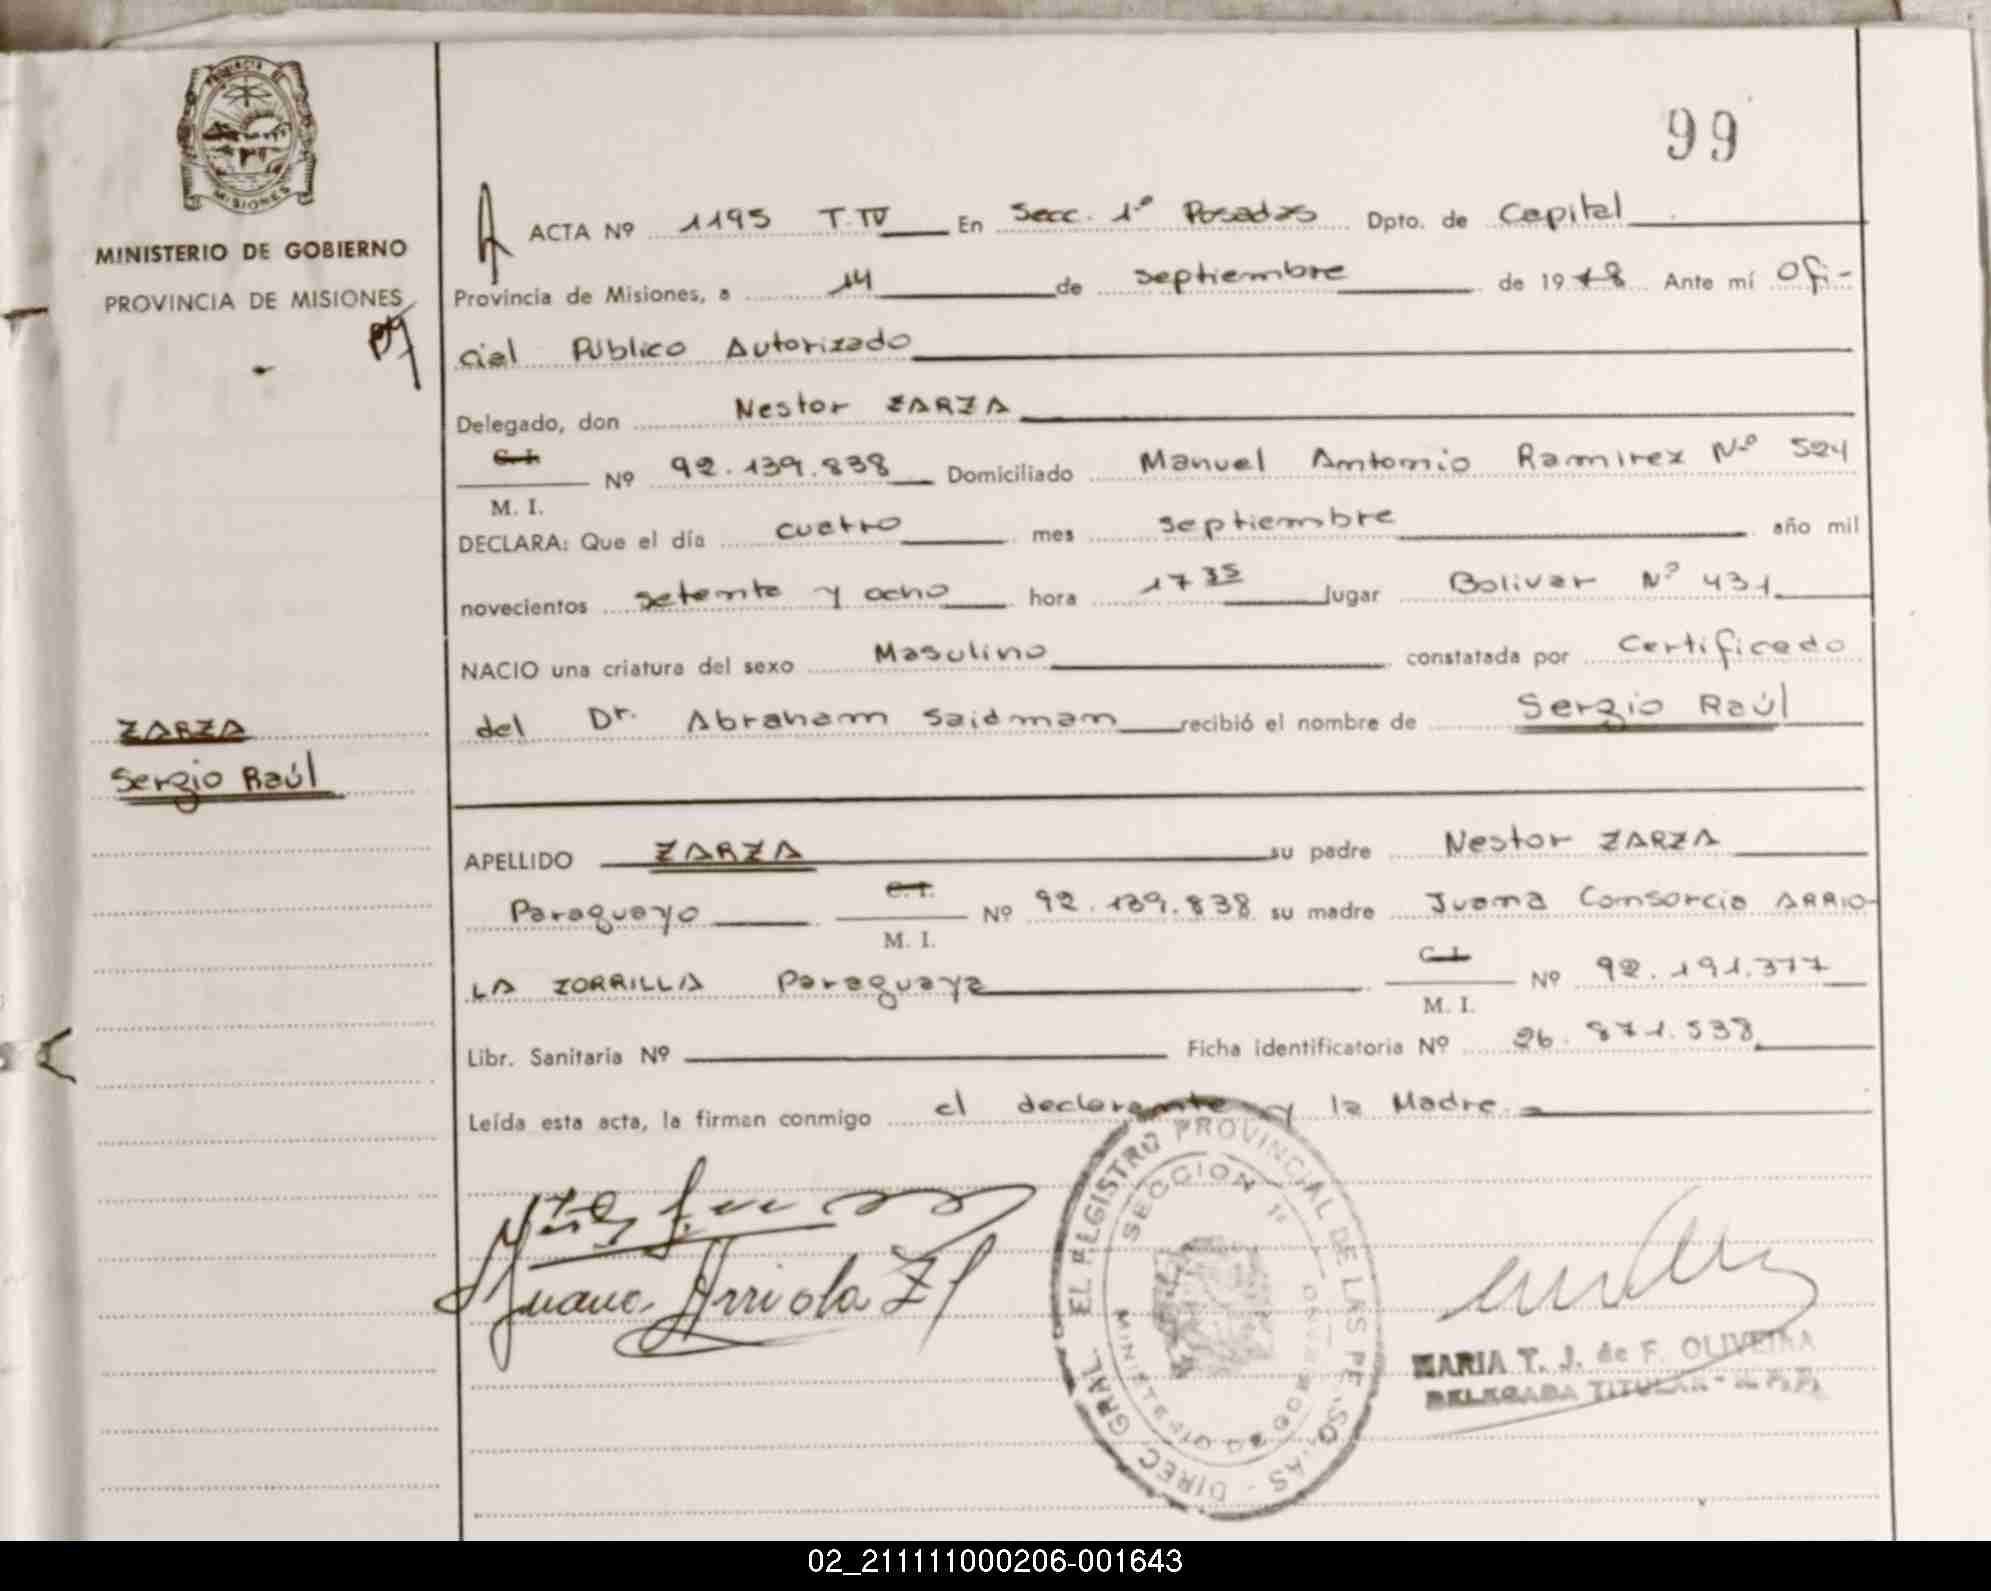 PROVINCIA DE
MISIONES
MINISTERIO DE GOBIERNO
PROVINCIA DE MISIONES
99
ACTA Nº 1195 T.IV En Secc. 1º Posadas Dpto. de Capital
Provincia de Misiones, a 14 de septiembre de 1978 Ante mí Ofi-
cial Público Autorizado
Delegado, don Nestor ZARZA
C. I.
Nº 92.139.838 Domiciliado Manuel Antonio Ramirez Nº 524
M. I.
DECLARA: Que el día cuatro mes septiembre año mil
novecientos setenta y ocho hora 17 35 lugar Bolivar Nº 431
NACIO una criatura del sexo Masulino constatada por Certificado
del Dr. Abraham Saidman recibió el nombre de Sergio Raúl
ZARZA
Sergio Raúl
APELLIDO ZARZA su padre Nestor ZARZA
C. I.
Paraguayo Nº 92.139.838 su madre Juana Consorcia ARRIO-
M. I.
C. I.
LA ZORRILLA Paraguaya Nº 92.191.377
M. I.
Libr. Sanitaria Nº Ficha identificatoria Nº 26.871.538
Leída esta acta, la firman conmigo el declarante y la Madre
Juana Arriola Z
DIREC. GRAL. EL REGISTRO PROVINCIAL DE LAS PERSONAS
SECCION 1º
MINISTERIO DE GOBIERNO
MARIA T. J. de F. OLIVEIRA
DELEGADA TITULAR - R. P. P.
02_211111000206-001643